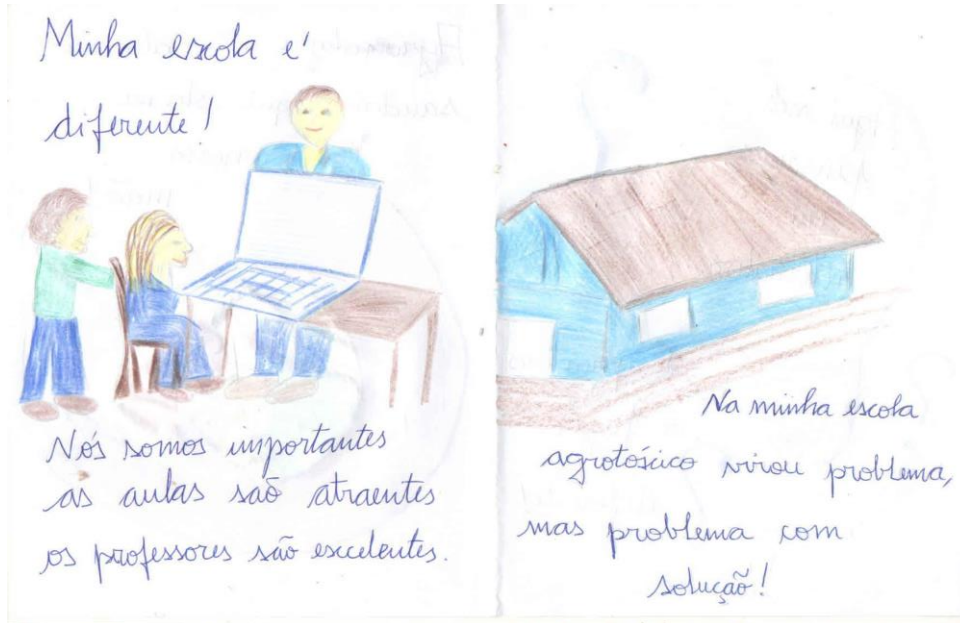 Minha escola é
diferente!
Nós somos importantes
as aulas são atraentes
os professores são excelentes.
Na minha escola
agrotóxico virou problema,
mas problema com
solução!